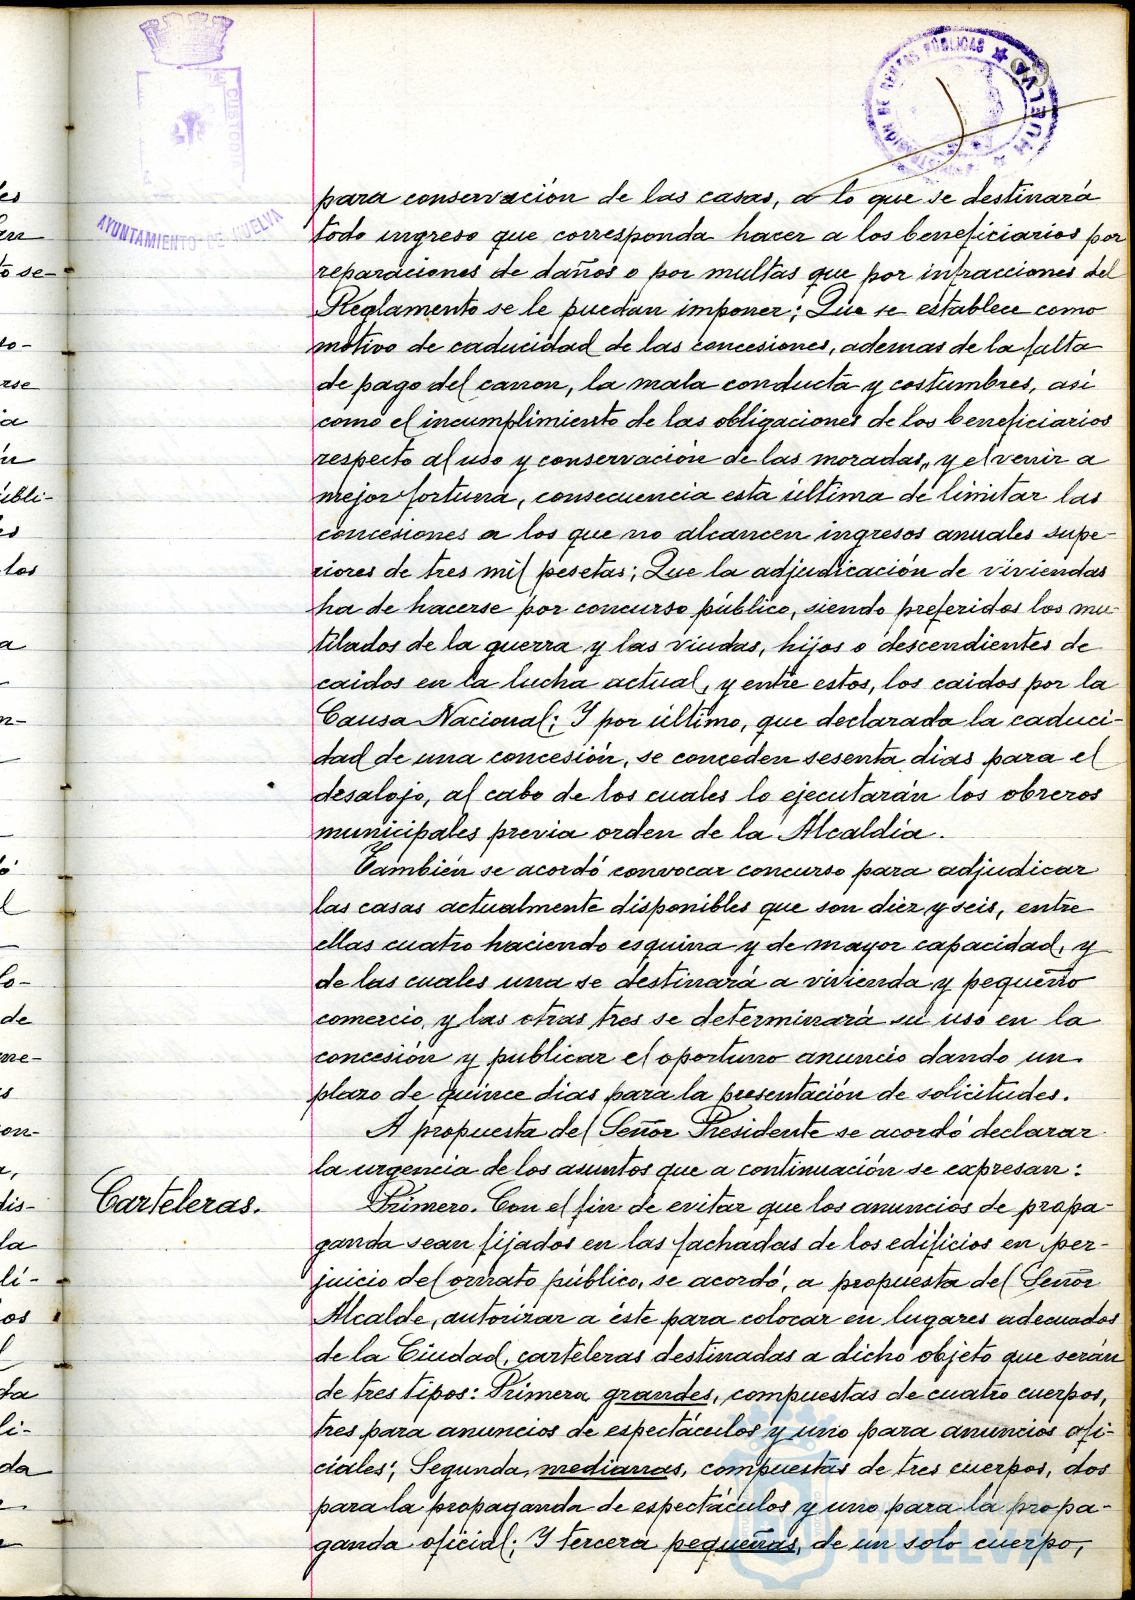 AYUNTAMIENTO DE HUELVA
HUELVA
para conservación de las casas, a lo que se destinará
todo ingreso que corresponda hacer a los beneficiarios por
reparaciones de daños o por multas que por infracciones del
Reglamento se le puedan imponer; Que se establece como
motivo de caducidad de las concesiones, ademas de la falta
de pago del canon, la mala conducta y costumbres, asi
como el incumplimiento de las obligaciones de los beneficiarios
respecto al uso y conservación de las moradas, y el venir a
mejor fortuna, consecuencia esta última de limitar las
concesiones a los que no alcancen ingresos anuales supe-
riores de tres mil pesetas; Que la adjudicación de viviendas
ha de hacerse por concurso público, siendo preferidos los mu-
tilados de la guerra y las viudas, hijos o descendientes de
caidos en la lucha actual, y entre estos, los caidos por la
Causa Nacional; Y por último, que declarada la caduci-
dad de una concesión, se conceden sesenta dias para el
desalojo, al cabo de los cuales lo ejecutarán los obreros
municipales previa orden de la Alcaldia.
También se acordó convocar concurso para adjudicar
las casas actualmente disponibles que son diez y seis, entre
ellas cuatro haciendo esquina y de mayor capacidad, y
de las cuales una se destinará a vivienda y pequeño
comercio, y las otras tres se determinará su uso en la
concesión y publicar el oportuno anuncio dando un
plazo de quince dias para la presentación de solicitudes.
A propuesta del Señor Presidente se acordó declarar
la urgencia de los asuntos que a continuación se expresan:
Carteleras.
Primero. Con el fin de evitar que los anuncios de propa-
ganda sean fijados en las fachadas de los edificios en per-
juicio del ornato público, se acordó, a propuesta del Señor
Alcalde, autorizar a éste para colocar en lugares adecuados
de la Ciudad, carteleras destinadas a dicho objeto que serán
de tres tipos: Primera grandes, compuestas de cuatro cuerpos,
tres para anuncios de espectáculos y uno para anuncios ofi-
ciales; Segunda, medianas, compuestas de tres cuerpos, dos
para la propaganda de espectáculos y uno para la propa-
ganda oficial; Y tercera pequeñas, de un solo cuerpo,
HUELVA